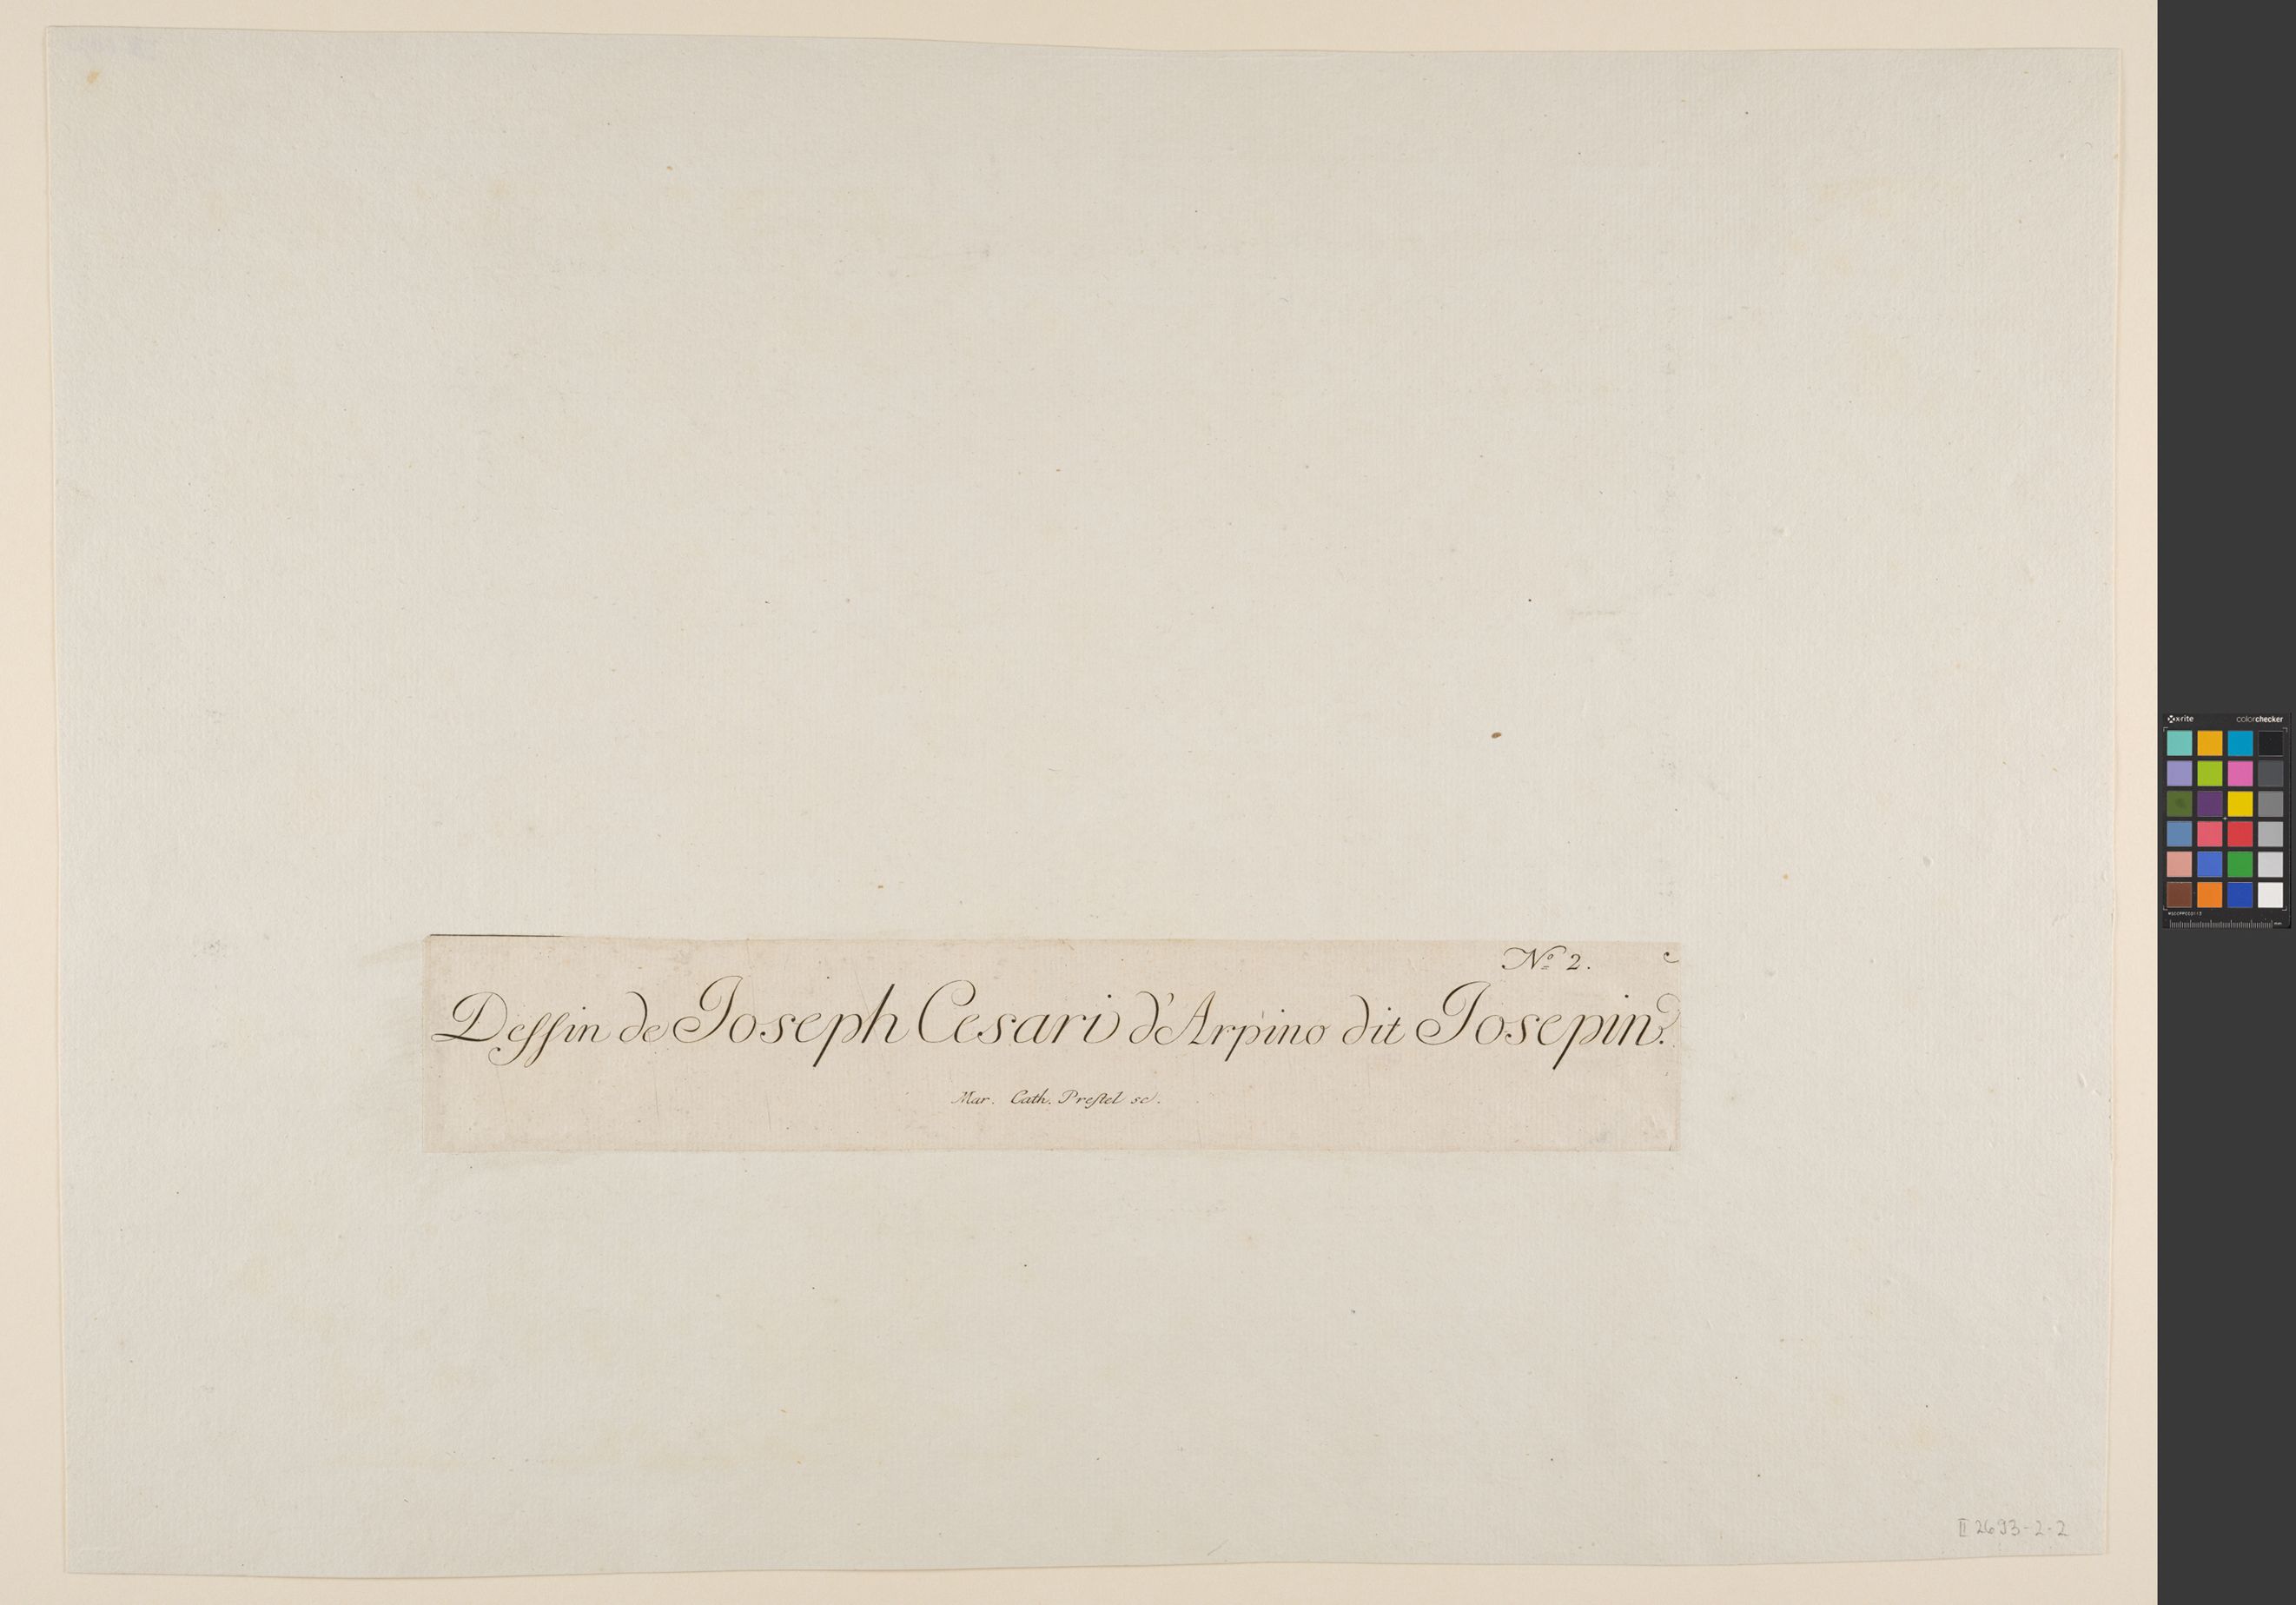 Nº 2.
Deſſin de Joseph Cesari d'Arpino dit Josepin.
Mar. Cath. Preſtel sc.
II 2693-2-2
x-rite colorchecker